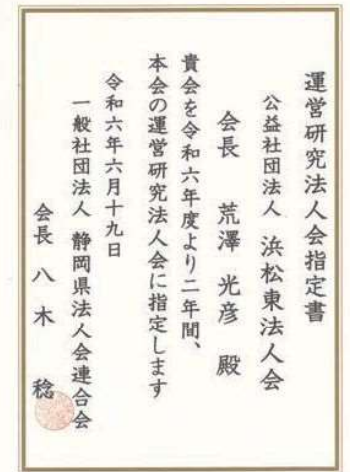 運営研究法人会指定書
公益社団法人 浜松東法人会
会長 荒澤 光彦 殿
貴会を令和六年度より二年間、
本会の運営研究法人会に指定します
令和六年六月十九日
一般社団法人 静岡県法人会連合会
会長 八木 稔